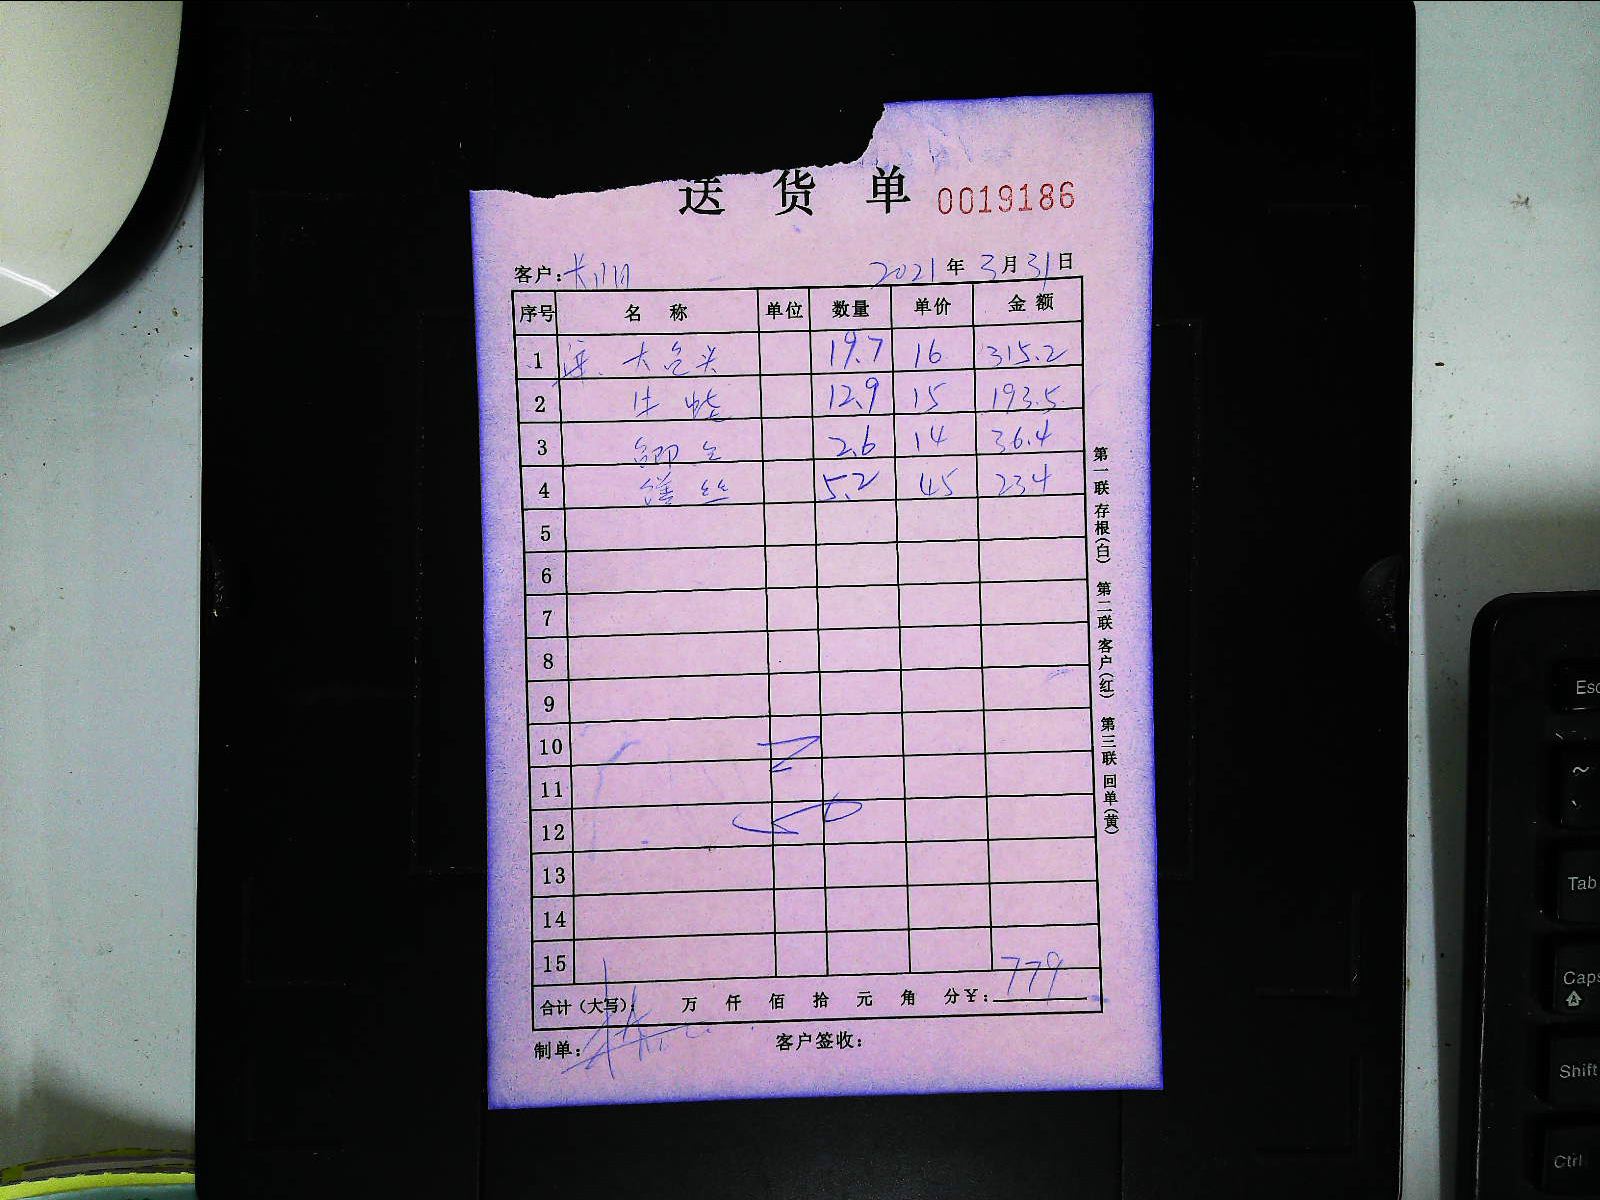 送 货 单 0019186
客户: 2021 年 3 月 31 日
序号 名 称 单位 数量 单价 金 额
1 大 头 19.7 16 315.2
2 牛 蛙 12.9 15 193.5
3 鲫 2.6 14 36.4
4 鳝 丝 5.2 45 234
5
6
7
8
9
10
11
12
13
14
15
合计（大写）： 万 仟 佰 拾 元 角 分￥：779
制单： 客户签收：
第一联 存根（白） 第二联 客户（红） 第三联 回单（黄）
Esc
~
Tab
Caps
Shift
Ctrl